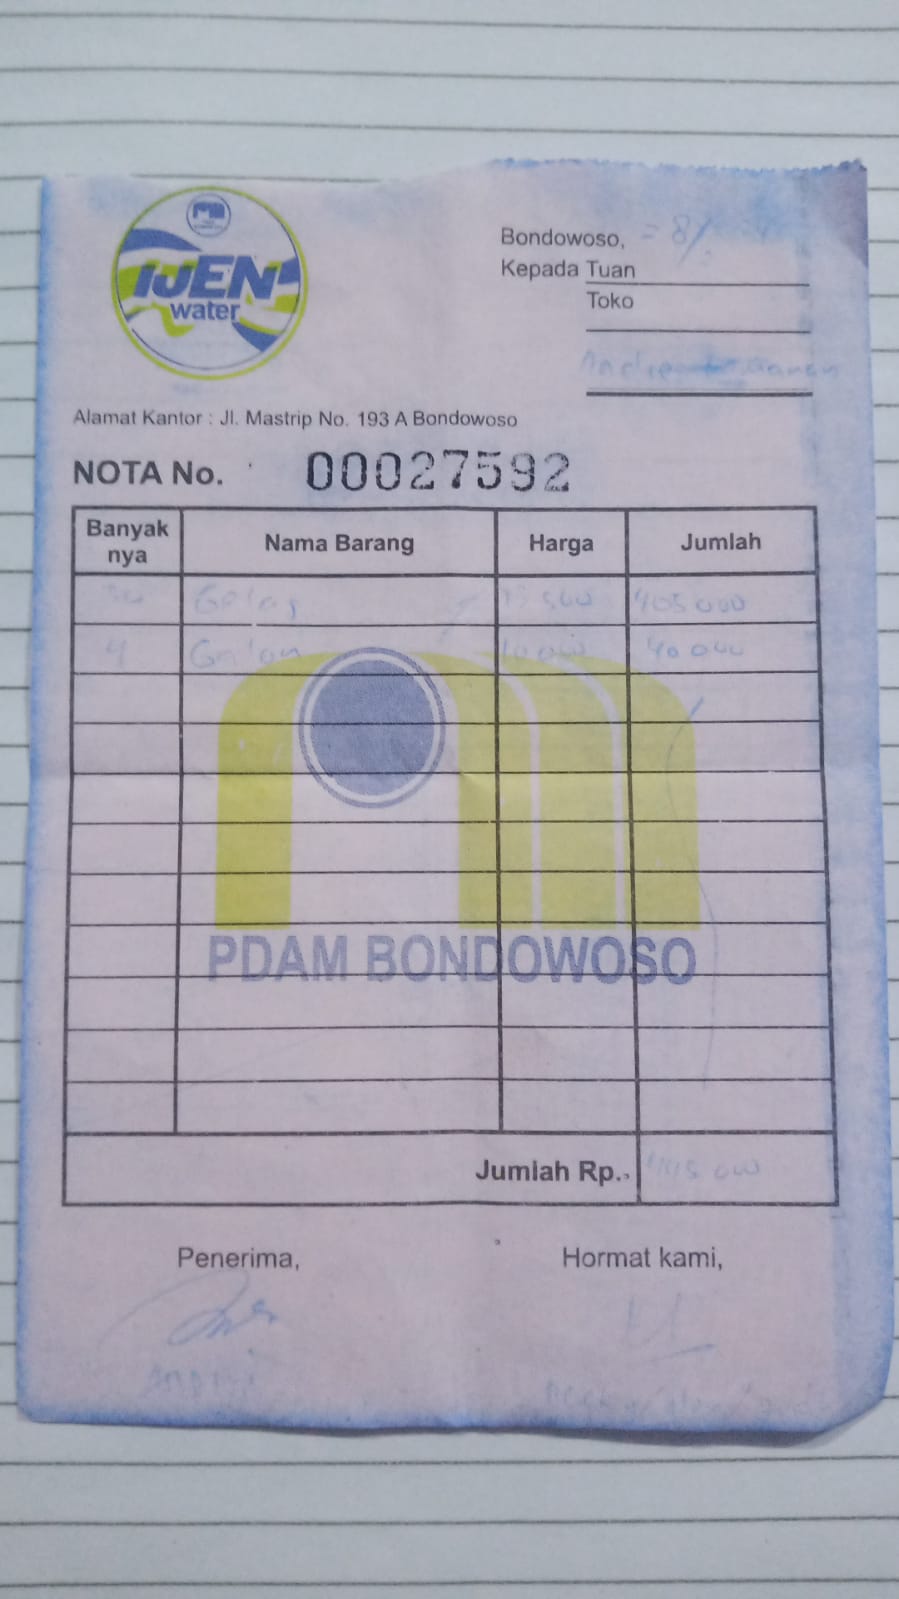 IJEN
water
Bondowoso, 8/
Kepada Tuan
Toko
Alamat Kantor : Jl. Mastrip No. 193 A Bondowoso
NOTA No. 00027592
Banyak nya Nama Barang Harga Jumlah
Gelas 13 500 405 000
4 Galon 10 000 40 000
PDAM BONDOWOSO
Jumlah Rp. 445 000
Penerima, Hormat kami,